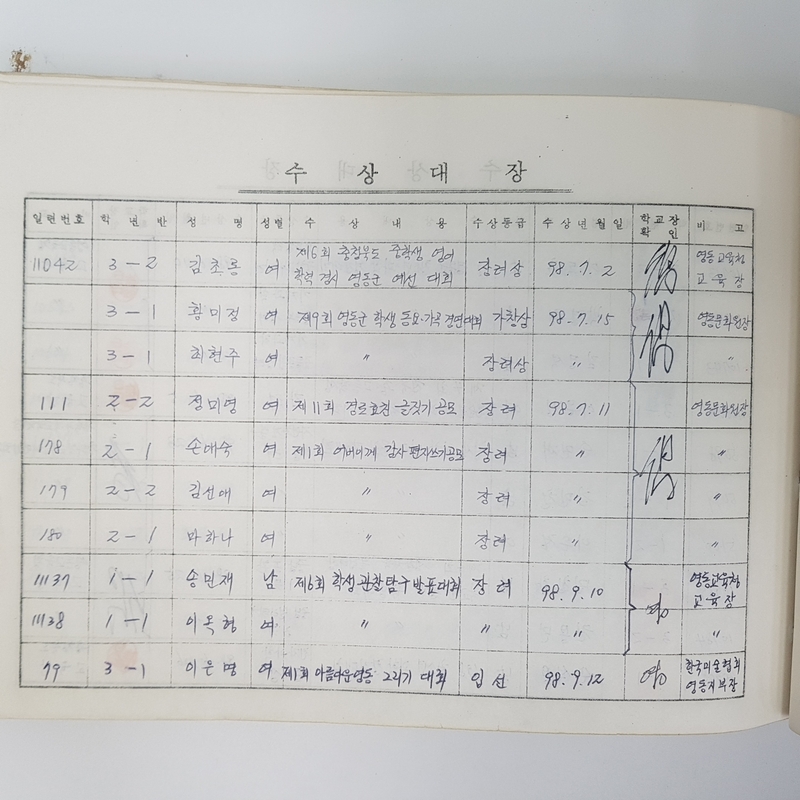 수 상 대 장
일련번호 학 년 반 성 명 성별 수 상 내 용 수상등급 수 상 년 월 일 학교장 확 인 비 고
11042 3-2 김초롱 여 제6회 충청북도 중학생 영어 학력 경시 영동군 예선 대회 장려상 98.7.2 영동교육청 교육장
3-1 황미정 여 제9회 영동군 학생 동요·가곡 경연대회 가창상 98.7.15 영동문화원장
3-1 최현주 여 〃 장려상 〃 〃
111 2-2 정미영 여 제11회 경로효친 글짓기 공모 장려 98.7.11 영동문화원장
178 2-1 손애숙 여 제1회 어버이께 감사 편지쓰기공모 장려 〃 〃
179 2-2 김선애 여 〃 장려 〃 〃
180 2-1 마하나 여 〃 장려 〃 〃
11137 1-1 송민재 남 제6회 학생 관찰 탐구 발표대회 장려 98.9.10 영동교육청 교육장
11138 1-1 이옥형 여 〃 〃 〃 〃
79 3-1 이은명 여 제1회 아름다운영동 그리기 대회 입선 98.9.12 한국미술협회 영동지부장